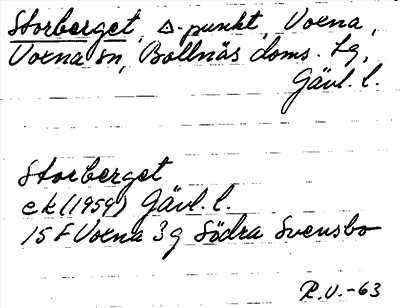 Storberget, △-punkt, Voxna,
Voxna sn, Bollnäs doms. tg,
Gävl. l.
Storberget
ek (1959) Gävl. l.
15 F Voxna 3 g Södra Svensbo
R.V.-63